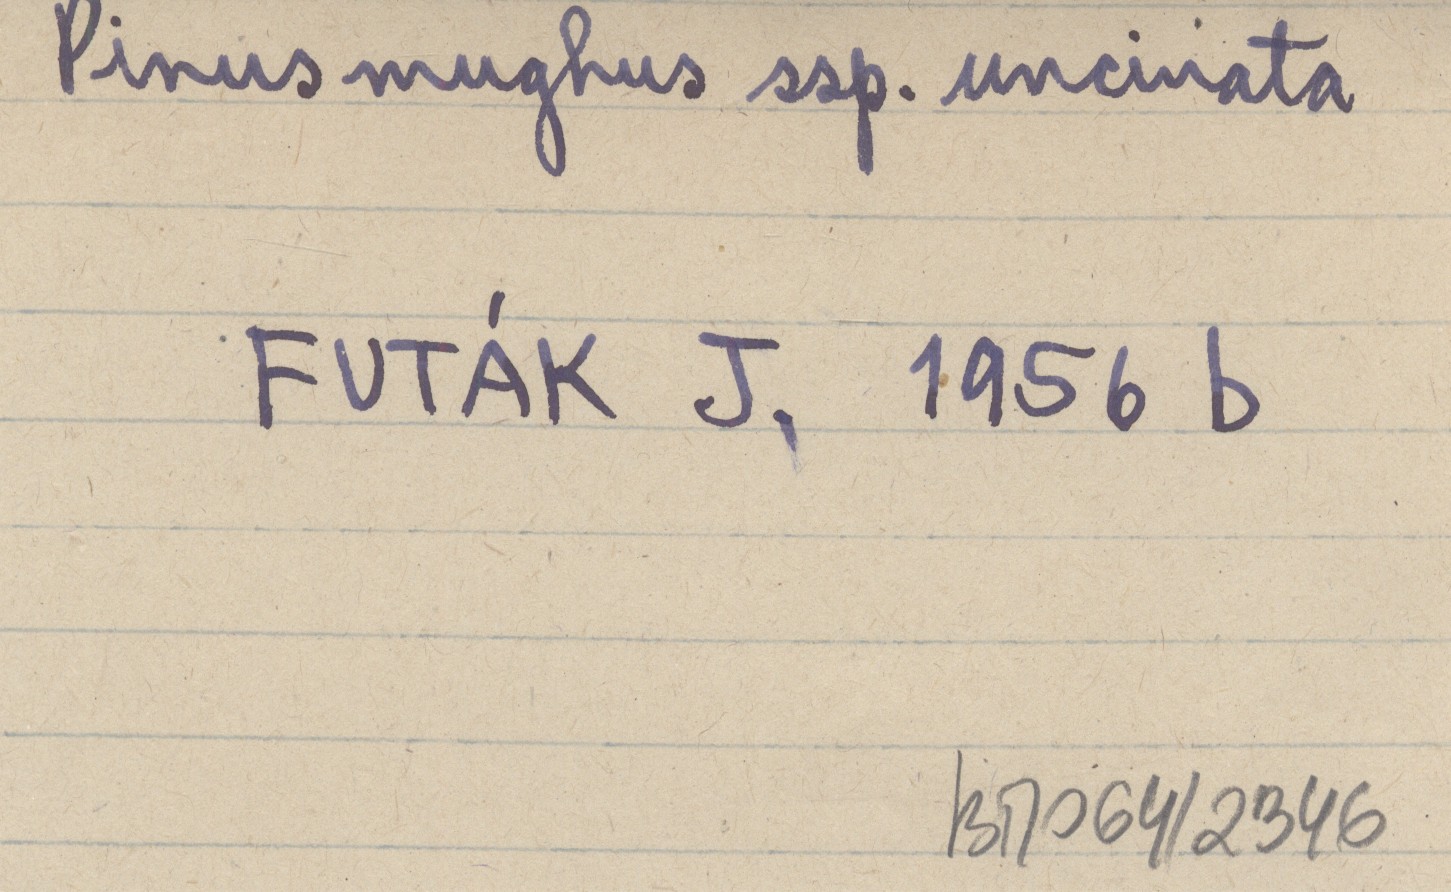 Pinus mughus ssp. uncinata
FUTÁK J, 1956 b
064/2346